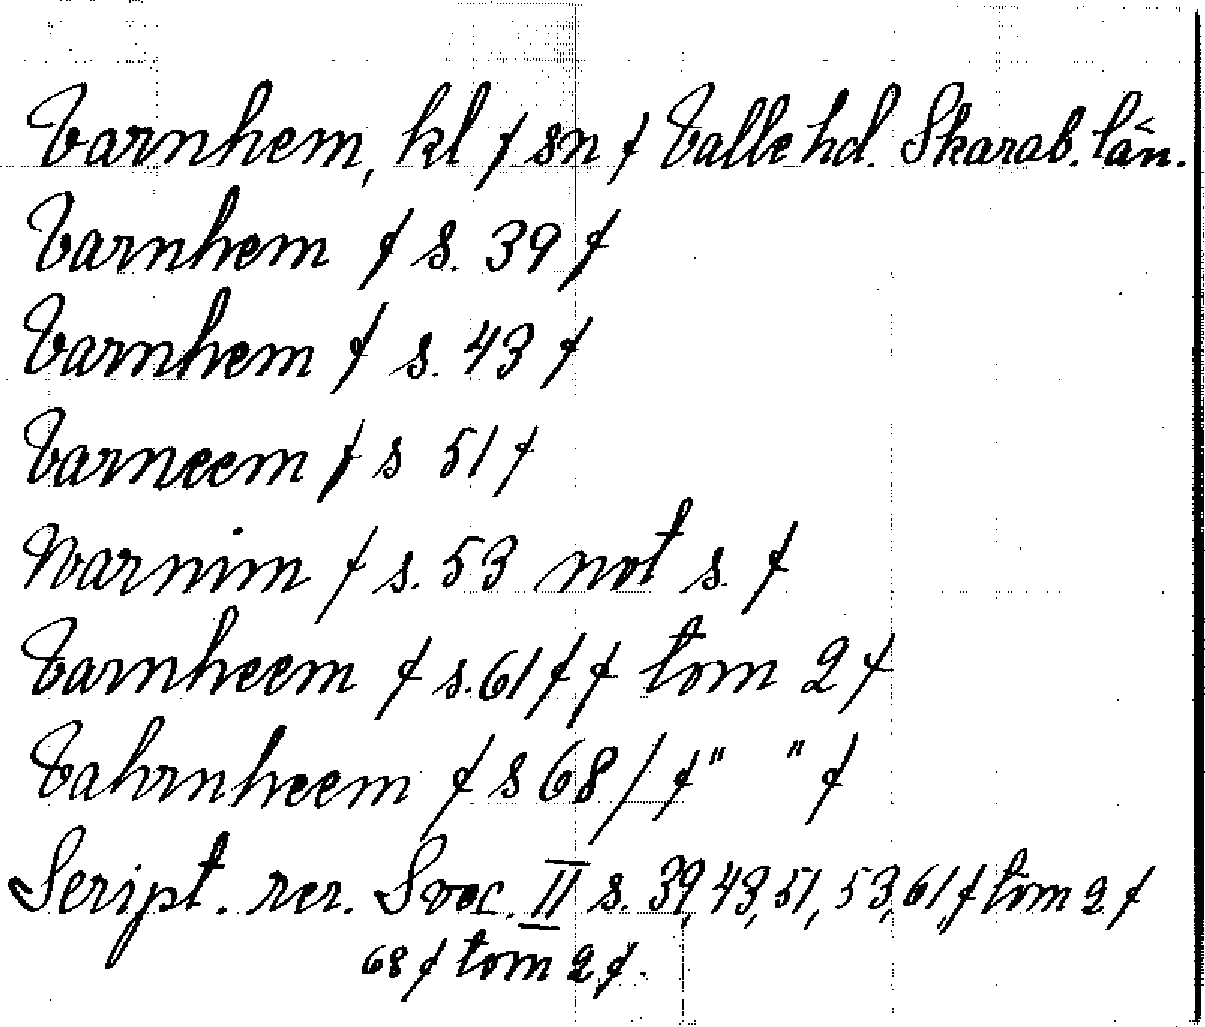 Varnhem, kl / sn / Valle hd. Skarab. län.
Varnhem / s. 39 /
Varnhem / s. 43 /
Varneem / s 51 /
Warnim / s. 53 not s. /
Varnheem / s. 61 / / tom 2 /
Vahrnheem / s 68 / / " " /
Script. rer. Svec. II s. 39, 43, 51, 53, 61 / tom 2 /
68 / tom 2 /.